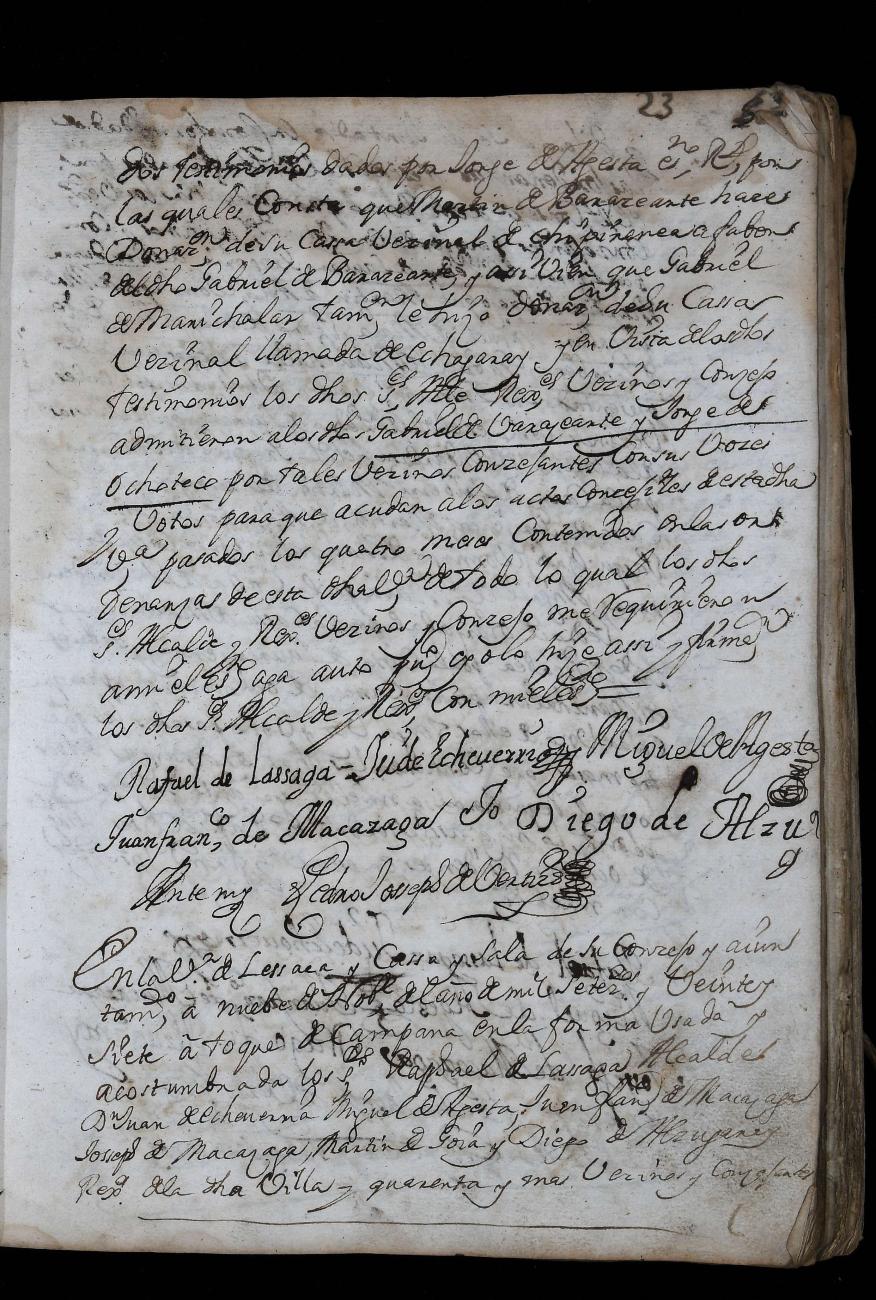 23
dos testimonios dados por Jorge de Agesta es.no R.l, por
las quales Consta que Martin de Barazeante hace
Donaz.n de su Cassa Vezinal de a fabor
del dho Gabriel de Barazeante, y assi vien que Gabriel
de Marichalar tam.n le hizo donaz.n de su Cassa
Vezinal llamada de Echagaray y en Vista de los dhos
testimonios los dhos S.es Al.e Rex.es Vezinos y Conzejo
admitieron a los dhos Gabriel de Varazeante y Jorge de
Ochoteco por tales Vezinos Conzejantes Con sus Vozes
Votos para que acudan a los actos Concejiles de esta dha
V.a pasados los quatro meses Contenidos en las or
denanzas de esta dha V.a de todo lo qual los dhos
S.es Alcalde y Rex.es Vezinos y Conzejo me Requirieron
a mi el es.no aga auto pu.co yo lo hize assi y firme
los dhos S.r Alcalde y Rex.es Con mi el es.no =
Rafael de Lassaga - Ju.n de Echeverria Miguel de Agesta
Juan fran.co de Macazaga Jo Diego de Alzu
g
Ante my Pedro Josseph de
En la V.a de Lessaca y Cassa y sala de su Conzejo y aiun
tam.to, â nuebe de Nob.e del año de mil Setez.os y Veinte y
siete â toque de Campana en la forma Usada y
acostumbrada los S.res Raphael de Lassaga Alcalde
D.n Juan de Echeverria Miguel de Agesta, Juan fran.co de Macazaga
Josseph de Macazaga, Martin de Goia y Diego de Alzugaray
Rex.s de la dha Villa y quarenta y mas Vezinos y Conzejantes